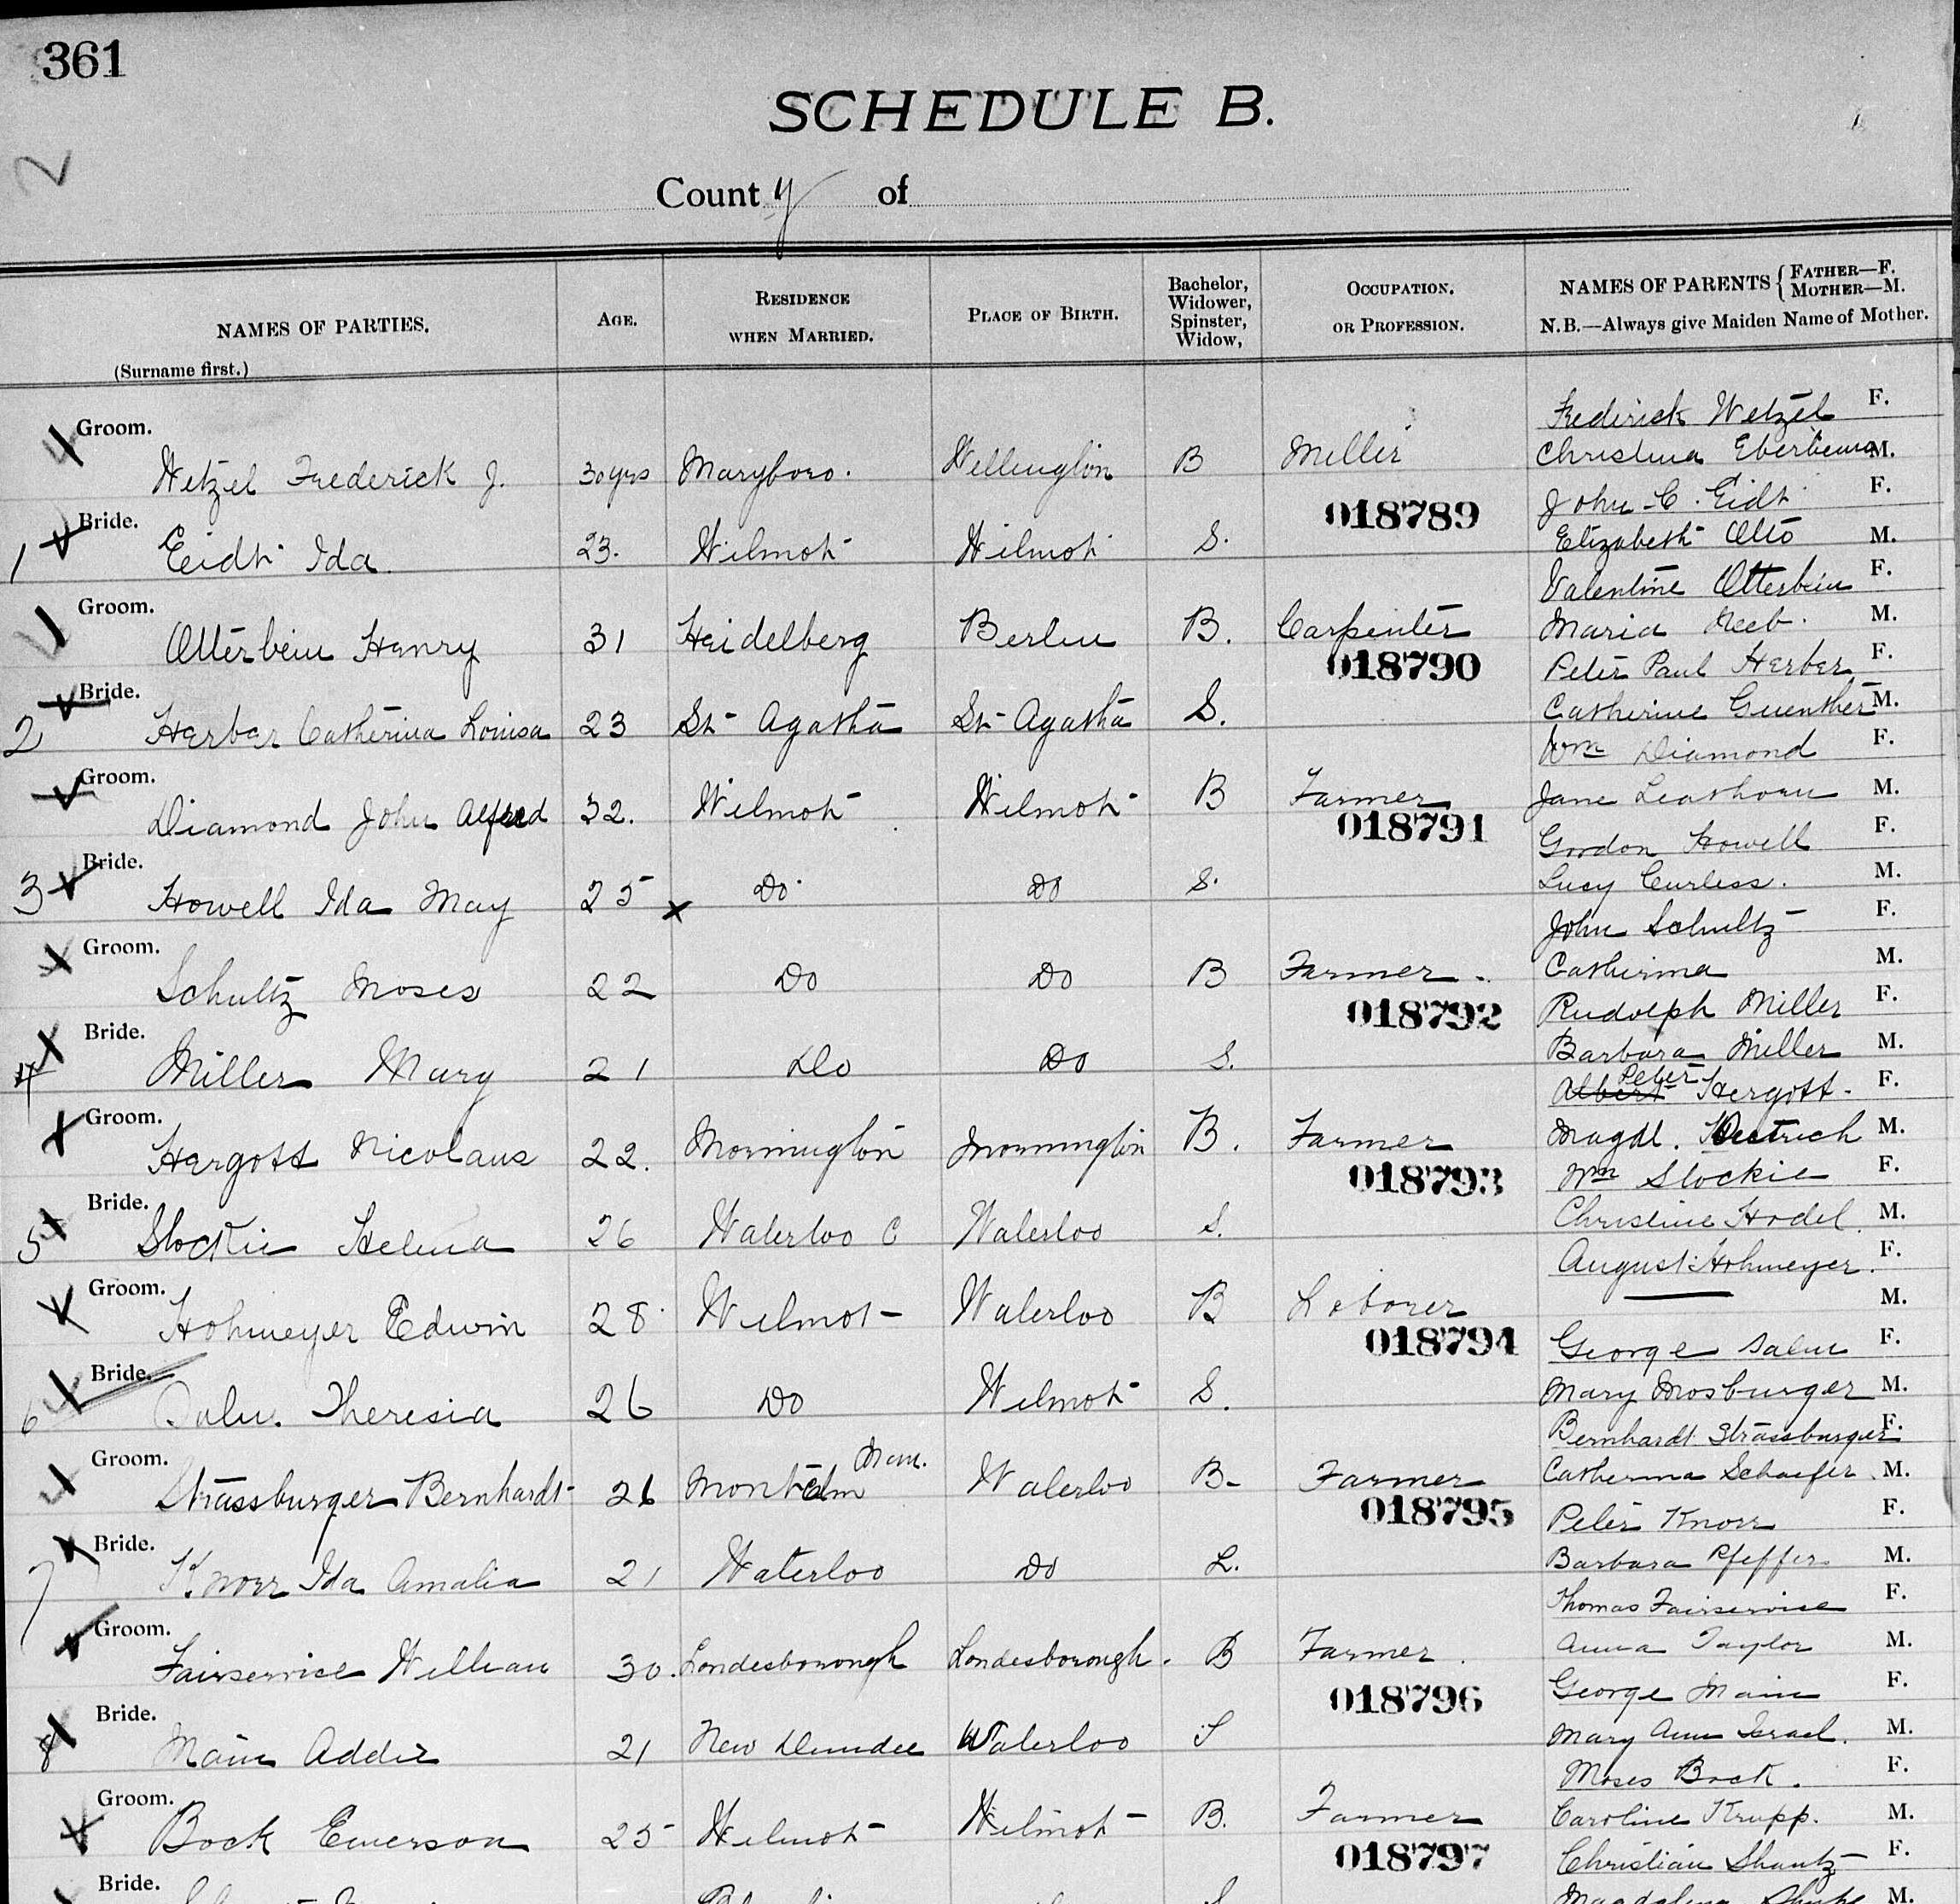 361
SCHEDULE B.
2
County of
NAMES OF PARTIES.
(Surname first.)
AGE.
RESIDENCE
WHEN MARRIED.
PLACE OF BIRTH.
Bachelor,
Widower,
Spinster,
Widow,
OCCUPATION.
OR PROFESSION.
NAMES OF PARENTS { FATHER—F.
MOTHER—M.
N.B.—Always give Maiden Name of Mother.
Frederick Wetzel F.
Groom.
Christina M.
Wetzel Frederick J. 30 yrs Maryboro. Wellington B Miller
018789
John C. Eidt F.
Bride.
Elizabeth Otto M.
1 Eidt Ida. 23. Wilmot Wilmot S.
Valentine Otterbein F.
Groom.
Maria Neeb. M.
Otterbein Henry 31 Heidelberg Berlin B. Carpenter
018790
Peter Paul Herber F.
Bride.
Catherine Guenther M.
2 Herber Catherina Louisa 23 St Agatha St Agatha S.
Wm Diamond F.
Groom.
Jane M.
Diamond John Alfred 32. Wilmot Wilmot B Farmer
018791
Gordon Howell F.
Bride.
Lucy Curless. M.
3 Howell Ida May 25 x Do Do S.
John Schultz F.
Groom.
Catherina M.
Schultz Moses 22 Do Do B Farmer.
018792
Rudolph Miller F.
Bride.
Barbara Miller M.
4 Miller Mary 21 Do Do S.
Peter
Albert Hergott F.
Groom.
Magdl. Dietrich M.
Hergott Nicolaus 22. Mornington Mornington B. Farmer
018793
Wm Stockie F.
Bride.
Christine Hodel. M.
5 Stockie Helena 26 Waterloo C Waterloo S.
August Hohmeyer. F.
Groom.
M.
Hohmeyer Edwin 28 Wilmot Waterloo B Laborer
018794
George Salm F.
Bride.
Mary Mosburger M.
6 Theresia 26 Do Wilmot S.
Bernhardt Strassburger F.
Groom.
Catherina Schaefer M.
Strassburger Bernhardt 26 Man. Waterloo B Farmer
018795
Peter Knorr F.
Bride.
Barbara Pfeffer M.
7 Knorr Ida Amalia 21 Waterloo Do S.
Thomas Fairservice F.
Groom.
Anna Taylor M.
Fairservice William 30. Londesborough Londesborough. B Farmer.
018796
George Main F.
Bride.
Mary Ann Israel. M.
8 Main Addie 21 New Dundee Waterloo S
Moses Bock. F.
Groom.
Caroline Krupp. M.
Bock Emerson 25 Wilmot Wilmot B. Farmer
018797
Christian Shantz F.
Bride.
M.